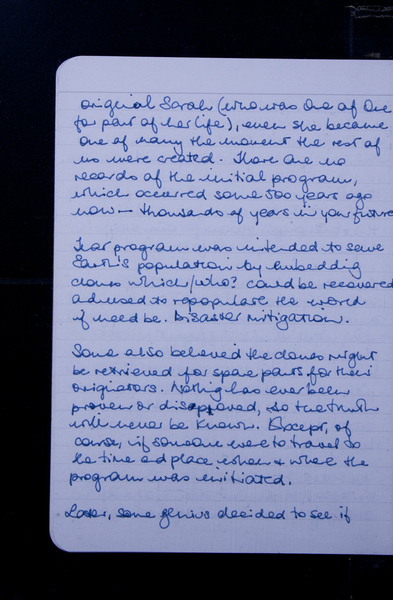 original Sarah (who was One of One
for part of her life), even she became
One of many the moment the rest of
us were created. There are no
records of the initial program,
which occurred some 500 years ago
now — thousands of years in your future
That program was intended to save
Earth's population by embedding
clones which/who? could be recovered
and used to repopulate the world
if need be. Disaster mitigation.
Some also believed the clones might
be retrieved for spare parts for their
originators. Nothing has ever been
proven or disproved, so the truth
will never be known. Except, of
course, if someone were to travel to
the time and place when & where the
program was initiated.
Later, some genius decided to see if